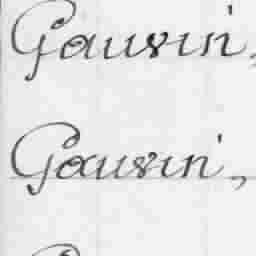 Gauvin,
Gauvin,